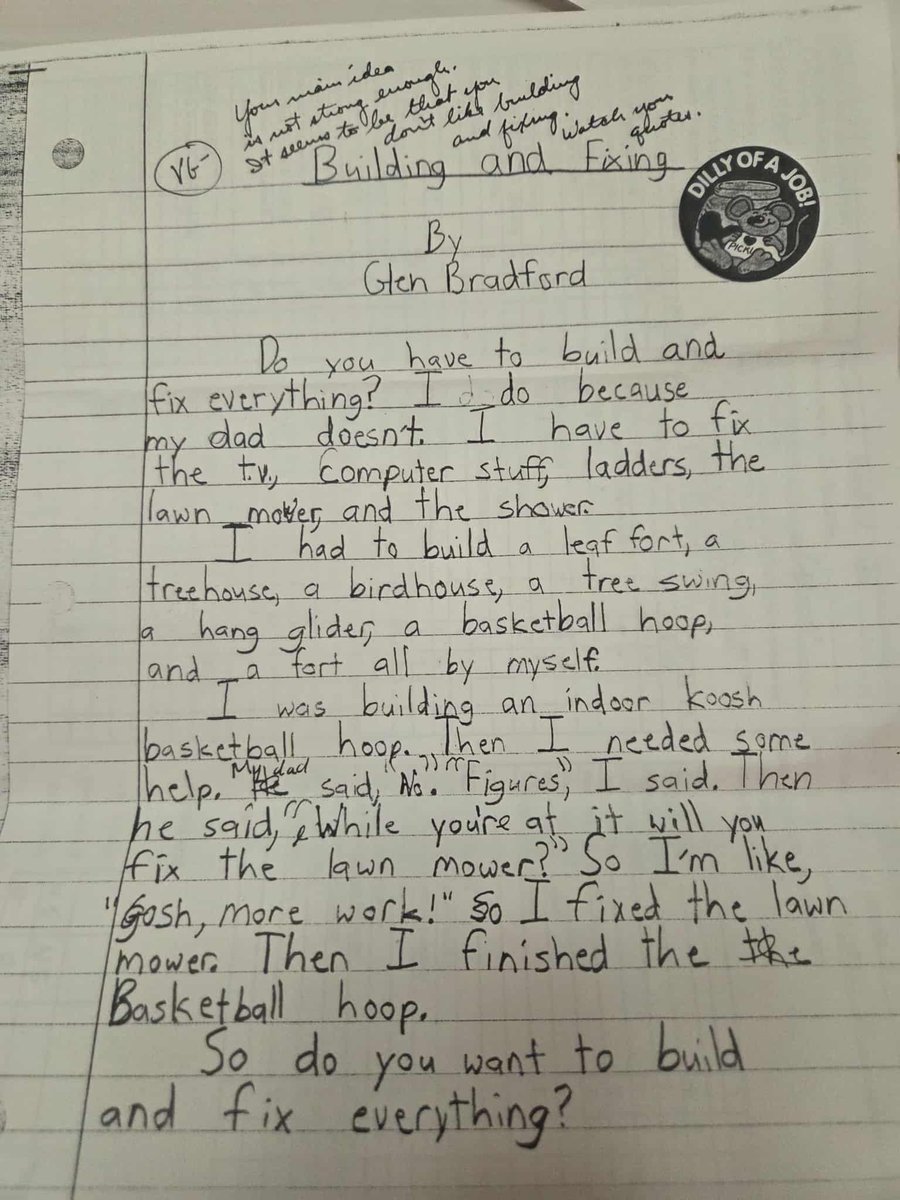 Your main idea
is not strong enough.
It seems to be that you
don't like building
and fixing. Watch your
quotes.
VG-
Building and Fixing
DILLY OF A JOB!
PICKL
By
Glen Bradford
Do you have to build and
fix everything? I do because
my dad doesn't. I have to fix
the t.v., computer stuff, ladders, the
lawn mower, and the shower.
I had to build a leaf fort, a
treehouse, a birdhouse, a tree swing,
a hang glider, a basketball hoop,
and a fort all by myself.
I was building an indoor koosh
basketball hoop. Then I needed some
My dad
help. He said, "No." "Figures", I said. Then
he said, "While you're at it will you
fix the lawn mower?" So I'm like,
"Gosh, more work!" So I fixed the lawn
mower. Then I finished the the
Basketball hoop.
So do you want to build
and fix everything?